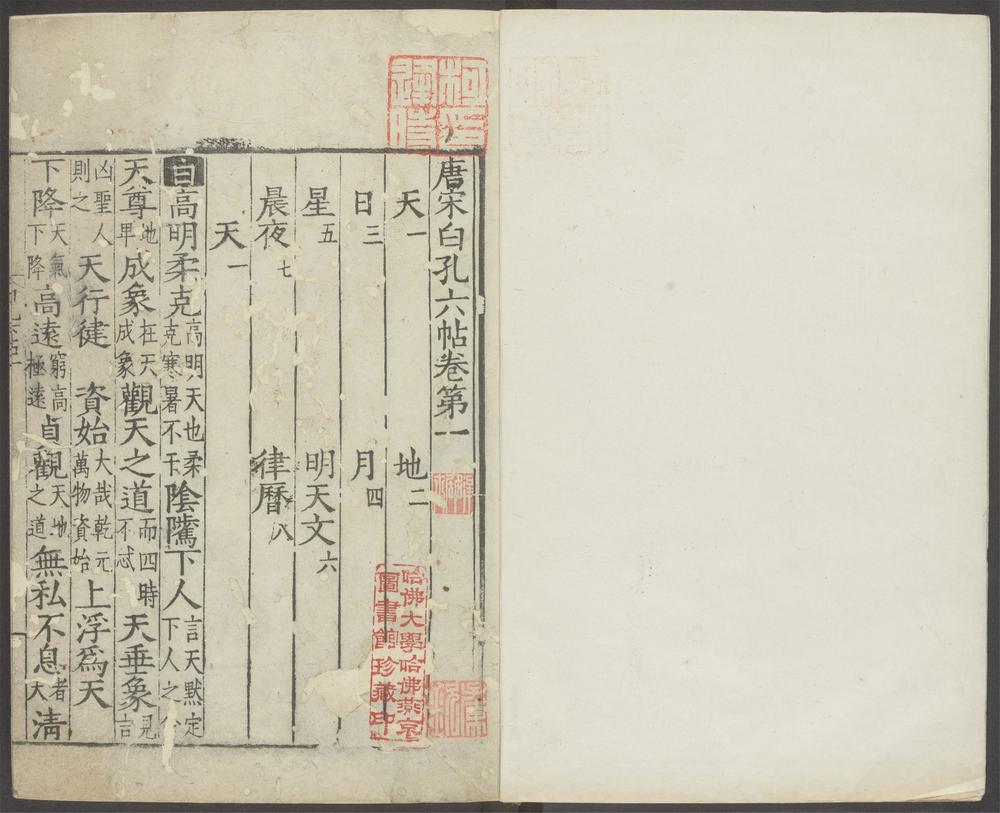 唐宋白孔六帖卷第一
天一　地二
日三　月四
星五　明天文六
晨夜七　律曆八
天一
白高明柔克高明天也柔克寒暑不干陰騭下人言天默定下人之分
天尊地卑成象在天成象觀天之道而四時不忒天垂象見吉
凶聖人則之天行健　資始大哉乾元萬物資始上浮為天
下降天氣下降高遠窮高極遠貞觀天地之道無私不息者大清
柯印逢時
哈佛大學哈佛燕京
圖書館珍藏印